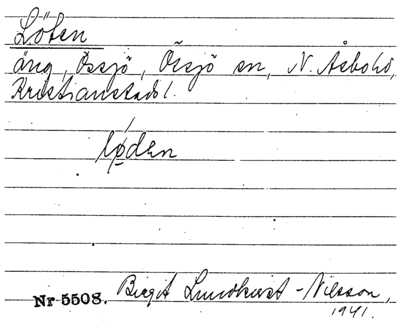 Löten
äng, Össjö, Össjö sn, N. Åsbo hd,
Kristianstads l.
løden
Nr 5508. Birgit Lundkvist-Nilsson,
1941.